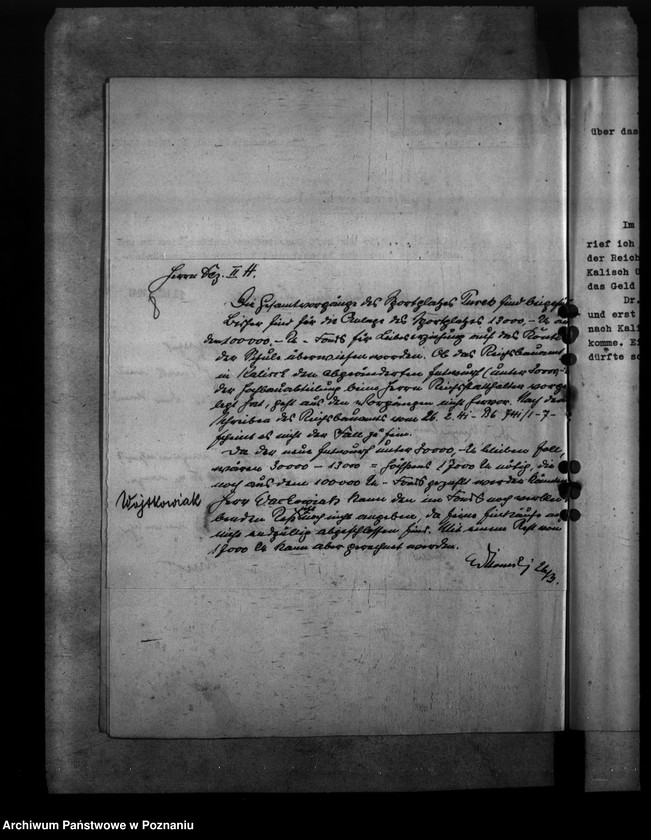 Herrn Dez. II H.
Die Gesamtvorgänge des Sportplatzes Turek sind beigefügt
Bisher sind für die Anlage des Sportplatzes 13000,- RM aus
dem 100000,- RM - Fonds für Leibeserziehung auf das Konto
der Schule überwiesen worden. Ob das Reichsbauamt
in Kalisch den abgeänderten Entwurf (unter 30000,-
der Hochbauabteilung beim Herrn Reichsstatthalter vorge-
legt hat, geht aus den Vorgängen nicht hervor. Nach dem
Schreiben des Reichsbauamts vom 26. 2. 41 - 741/1-7-
scheint es nicht der Fall zu sein.
Da der neue Entwurf unter 30000,- RM bleiben soll,
wären 30000 - 13000 = höchstens 17000 RM nötig, die
noch aus dem 100000 RM - Fonds gezahlt werden könnten
Wojtkowiak
Herr kann den im Fonds noch verblei-
benden Rest noch nicht angeben, da seine Einkäufe noch
nicht endgültig abgeschlossen sind. Mit einem Rest von
17000 RM kann aber gerechnet werden.
26/3.
über das
Im
rief ich
der Reich
Kalisch
das Geld
Dr.
und erst
nach Kali
komme. Ei
dürfte so
Archiwum Państwowe w Poznaniu